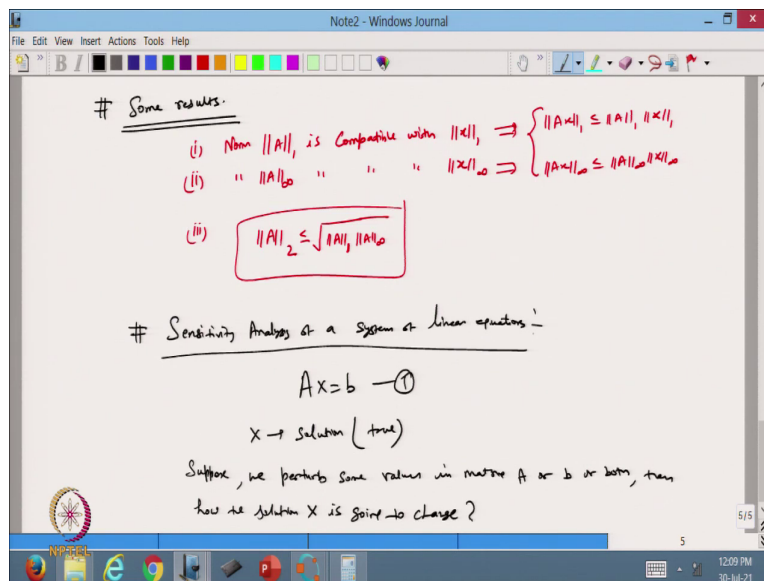 Note2 - Windows Journal
File Edit View Insert Actions Tools Help
# Some results.
(i) Norm ||A||₁ is Compatible with ||x||₁ ⇒ { ||Ax||₁ ≤ ||A||₁ ||x||₁
(ii) " ||A||∞ " " " ||x||∞ ⇒ ||Ax||∞ ≤ ||A||∞ ||x||∞
(iii) ||A||₂ ≤ √||A||₁ ||A||∞
# Sensitivity Analysis of a System of linear equations:-
Ax=b —①
X → Solution (true)
Suppose, we perturb some values in matrix A or b or both, then
how the solution X is going to change?
NPTEL
5/5
5
12:09 PM
30-Jul-21